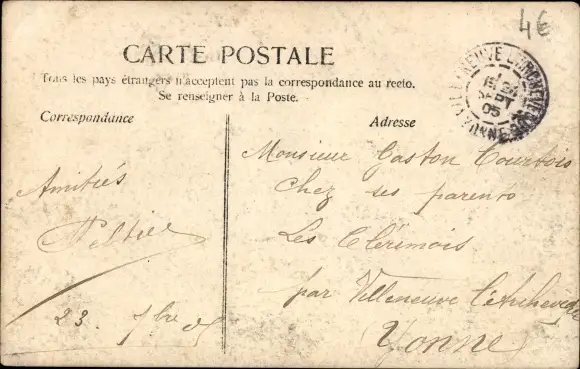 46
CARTE POSTALE
Tous les pays étrangers n'acceptent pas la correspondance au recto.
Se renseigner à la Poste.
Correspondance
Adresse
VILLENEUVE L'ARCHEVEQUE
SEPT
05
YONNE
Amitiés
23. 7bre 05
Monsieur Gaston Courtois
Chez ses parents
Les Clérimois
par Villeneuve l'Archevêque
(Yonne)